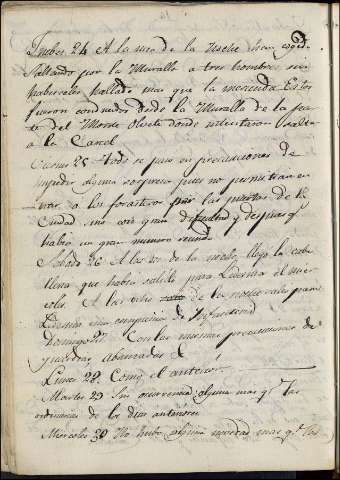 Jueves 24 A la una de la noche han cogido
saltando por la Muralla a tres hombres sin
haberseles hallado mas que la merienda. Estos
fueron conducidos desde la Muralla de la par
te del Monte Olivete donde
a la Carcel.
Viernes 25 todo se paso en precauciones de
impedir alguna sorpresa pues no permitian en
trar a los forasteros por las puertas de la
Ciudad sino con gran dificultad y despues q.e
habia un gran numero reunido
Sabado 26 A las de la noche llegó la caba
lleria que habia salido para Ledesma el mier
coles. A las ocho de la noche salio para
Ledesma una compañia de Infanteria
Domingo 27. Con las mismas precauciones de
puertas abarradas &
Lunes 28. Como el anterior.
Martes 29 Sin ocurrencia alguna mas q.e las
ordinarias de los dias anteriores
Miercoles 30 No hubo alguna novedad mas q.e las